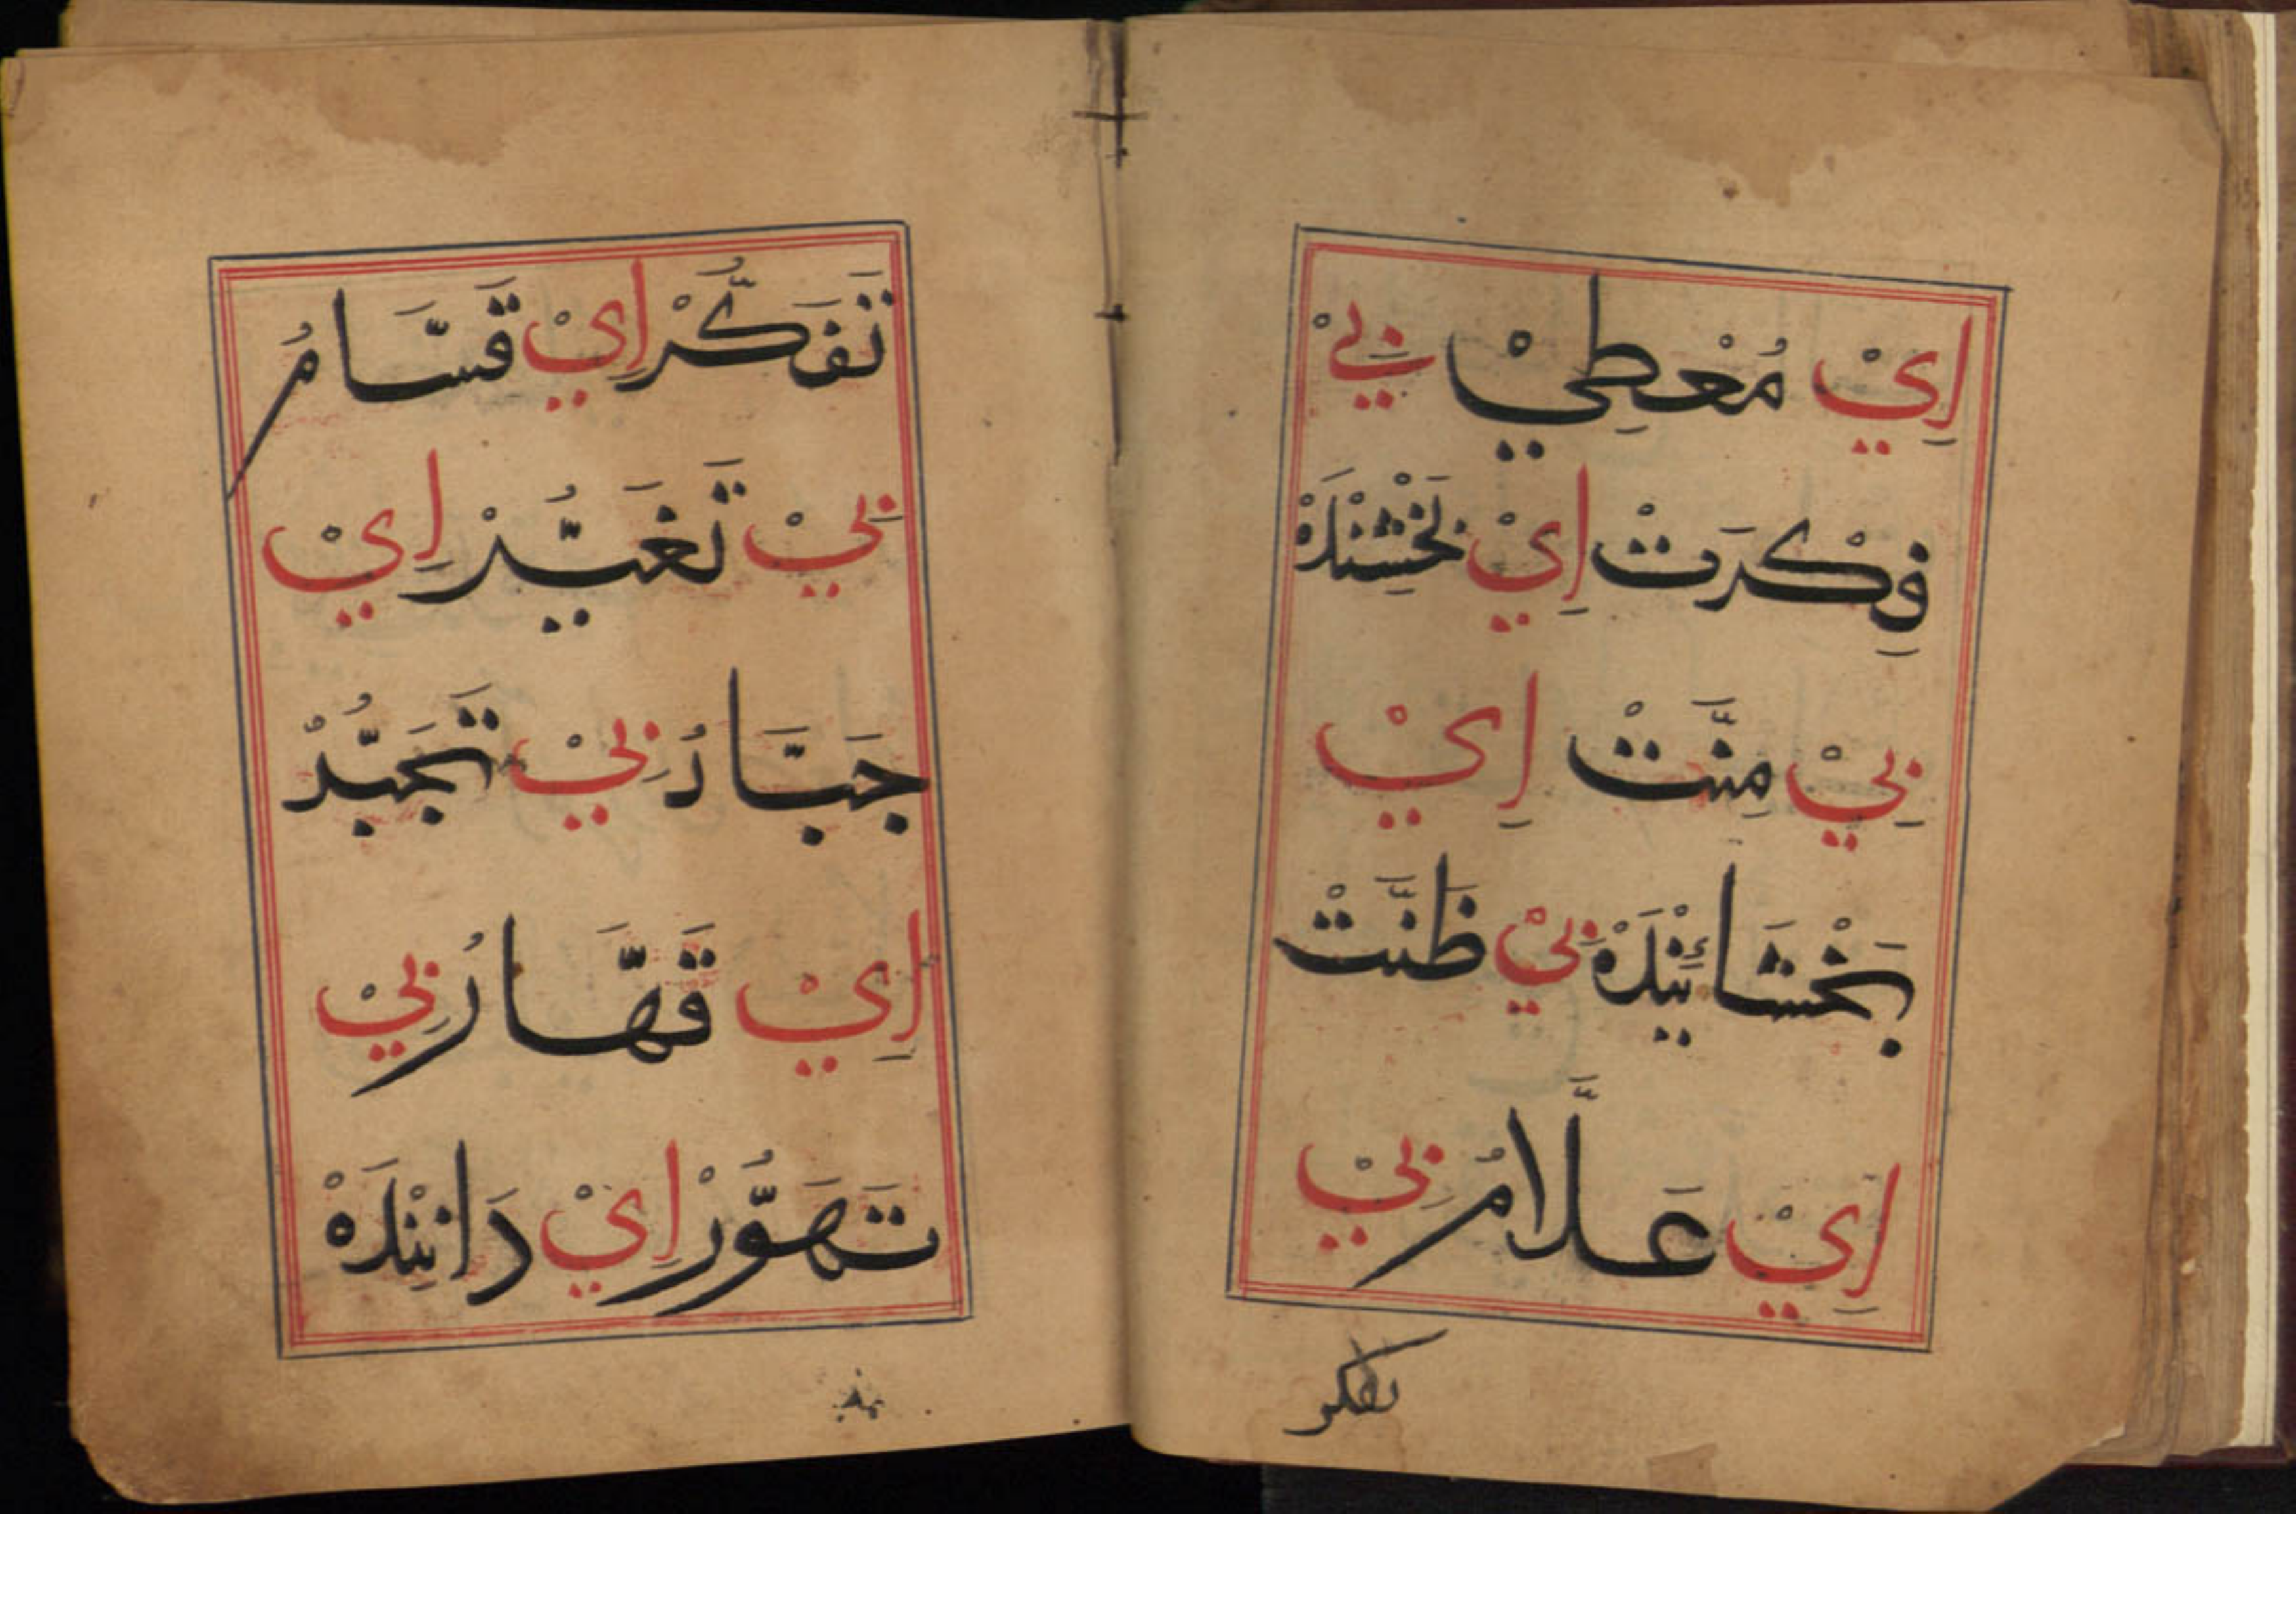 اِيْ مُعْطِيْ بِيْ
فِكْرَتْ اِيْ بَخْشِنْدَهْ
بِيْ مِنَّتْ اِيْ
بَخْشَائِيَنْدَهْ بِيْ ظَنَّتْ
اِيْ عَلَّامُ بِيْ
تفكر
تَفَكُّرْ اِيْ قَسَّامُ
بِيْ تَغَيُّرْ اِيْ
جَبَّارُ بِيْ تَجَبُّرْ
اِيْ قَهَّارُ بِيْ
تَهَوُّرْ اِيْ دَانِنْدَهْ